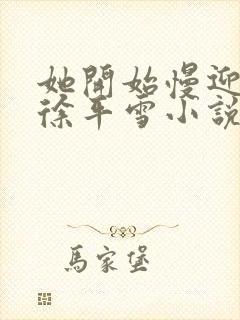 她開始慢迎
徐平雪小說
馬家堡